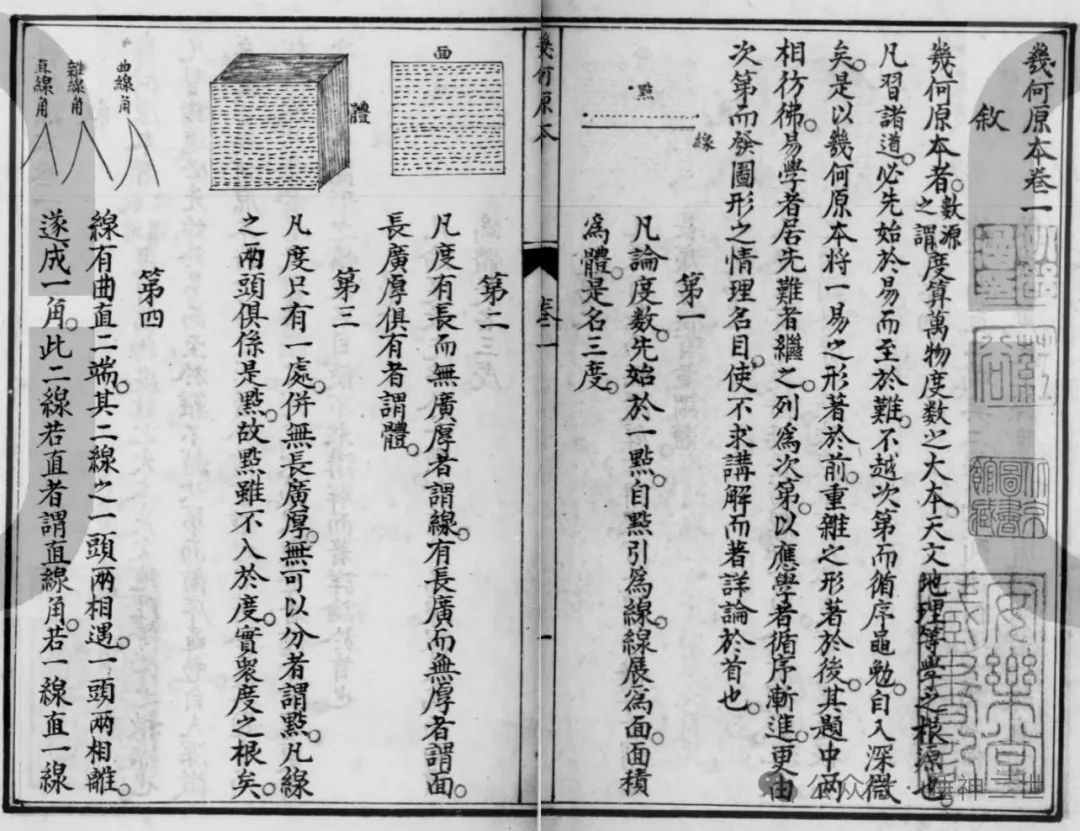 幾何原本卷一
敘
幾何原本者數源之謂度算萬物度数之大本天文地理等學之根源也
凡習諸道必先始於易而至於難不越次第而循序黽勉自入深微
矣是以幾何原本將一易之形著於前重雜之形著於後其題中两
相彷彿易學者居先難者繼之列為次第以應學者循序漸進更由
次第而發圖形之情理名目使不求講解而著詳論於首也
點
線
第一
凡論度數先始於一點自點引為線線展為面面積
為體是名三度
幾何原本
卷一
一
面
體
第二
凡度有長而無廣厚者謂線有長廣而無厚者謂面
長廣厚俱有者謂體
第三
凡度只有一處併無長廣厚無可以分者謂點凡線
之兩頭俱係是點故點雖不入於度實衆度之根矣
曲線角
雜線角
直線角
第四
線有曲直二端其二線之一頭兩相遇一頭兩相離
遂成一角此二線若直者謂直線角若一線直一線